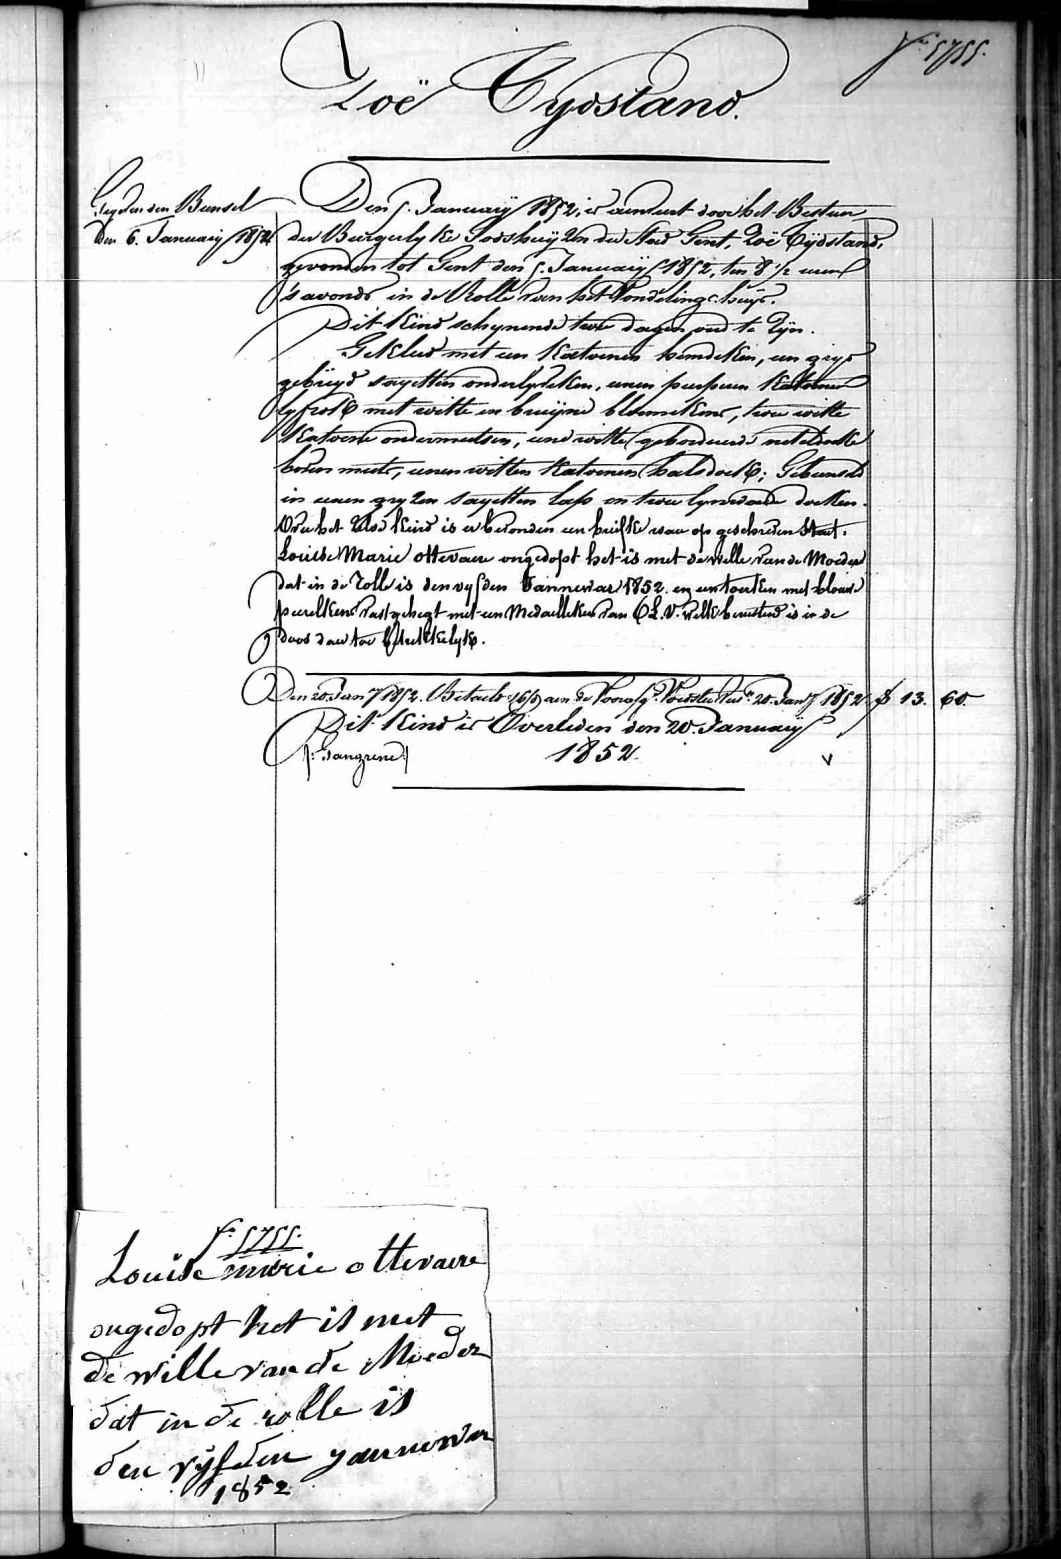 fo. 5755.
Zoë Tydstand.
Gegeven den Bunsel
den 6. January 1852
Den 5. January 1852, is aenveert door het Bestier
der Burgerlyke Godshuyzen der Stad Gent, Zoë Tydstand,
gevonden tot Gent den 5. January 1852, ten 8 1/2 uren
's avonds in de Rolle van het Vondelings-huys.
Dit Kind schynende twee dagen oud te zyn.
Gekleed met een Katoenen hemdeken, een grys
gebreyd sayetten onderlyfeken, eenen purpuren Katoenen
lyfrok met witte en bruyne bloemekens, twee witte
Katoene ondermutsen, eene witte geborduerde netteldoeke
boven muts, eenen witten Katoenen halsdoek; Gebunseld
in eenen gryzen sayetten lap en twee lynwaede doeken.
Over het Kind is er bevonden een briefke waer op geschreven staet.
Louise Marie ottevaere ongedopt het is met de wille van de Moeder
dat in de rolle is den vyfden Jannewar 1852. en een toerken met blauwe
peerelkens vastgehegt met een Medaelleken van O.L.V. welke berustend is in de
doos daer toe betrekkelyk.
Den 20 January 1852. Betaelt aen de Voorsz. 20 January 1852 fs 13. 60.
Dit Kind is Overleden den 20. January
(:Gangrene:) 1852. v
fo. 5755.
Louise marie ottevaere
ongedopt het is met
de wille van de Moeder
dat in de rolle is
den vyfden yannewar
1852